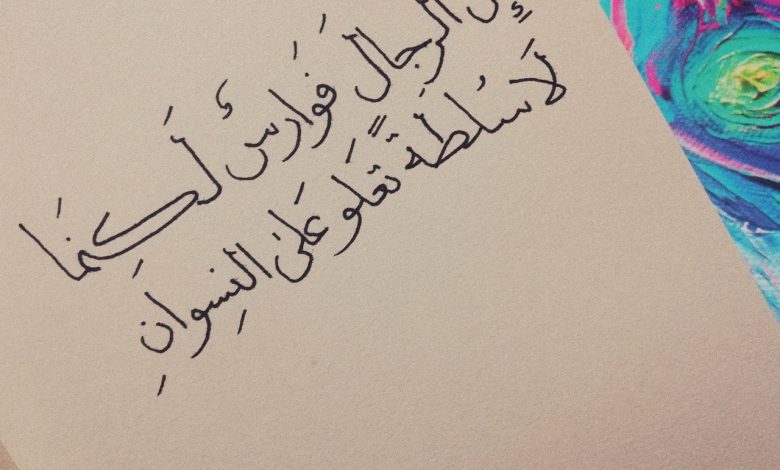 إن الرجال فَوَارسٌ لَكِنمَا
لَا سُلطَةً تَعلَو عَلىٰ النِسوانِ